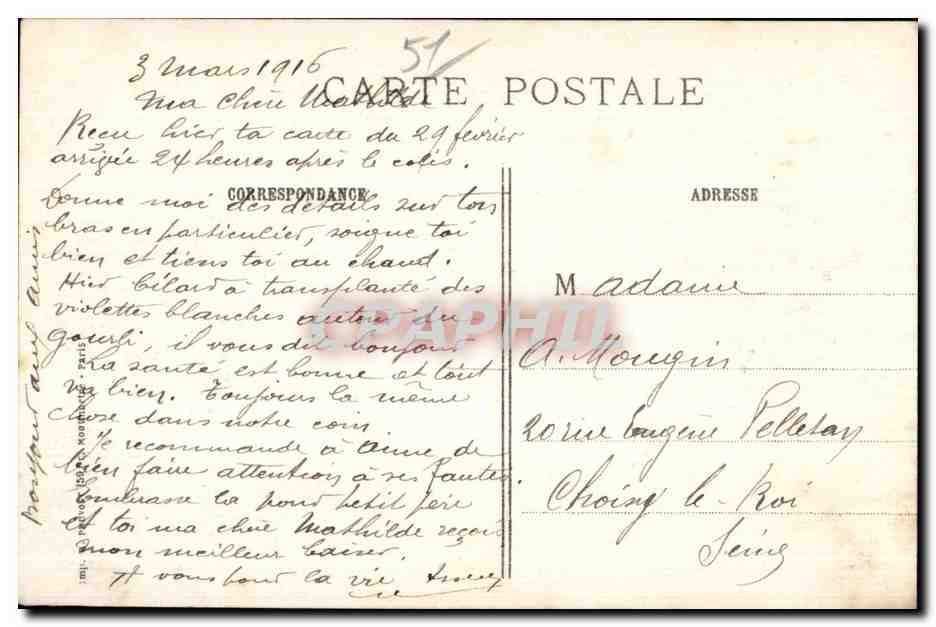 51
3 mars 1916
CARTE POSTALE
Ma chère Mathilde
Reçu hier ta carte du 29 février
arrivée 24 heures après le colis.
CORRESPONDANCE
ADRESSE
Donne moi des détails sur ton
bras en particulier, soigne toi
bien et tiens toi au chaud.
Hier Bélard a transplanté des
violettes blanches autour du
gourbi, il vous dit bonjour
La santé est bonne et tout
va bien. Toujours la même
chose dans notre coin.
Je recommande à Anne de
bien faire attention à ses fautes.
Embrasse la pour petit père
et toi ma chère Mathilde reçois
mon meilleur baiser.
A vous pour la vie
Bonjour aux amis
Imp. PREVOT, 159 Paris
CPAPHIL
Madame
A. Mougin
20 rue Eugène Pelletan
Choisy le-Roi
Seine